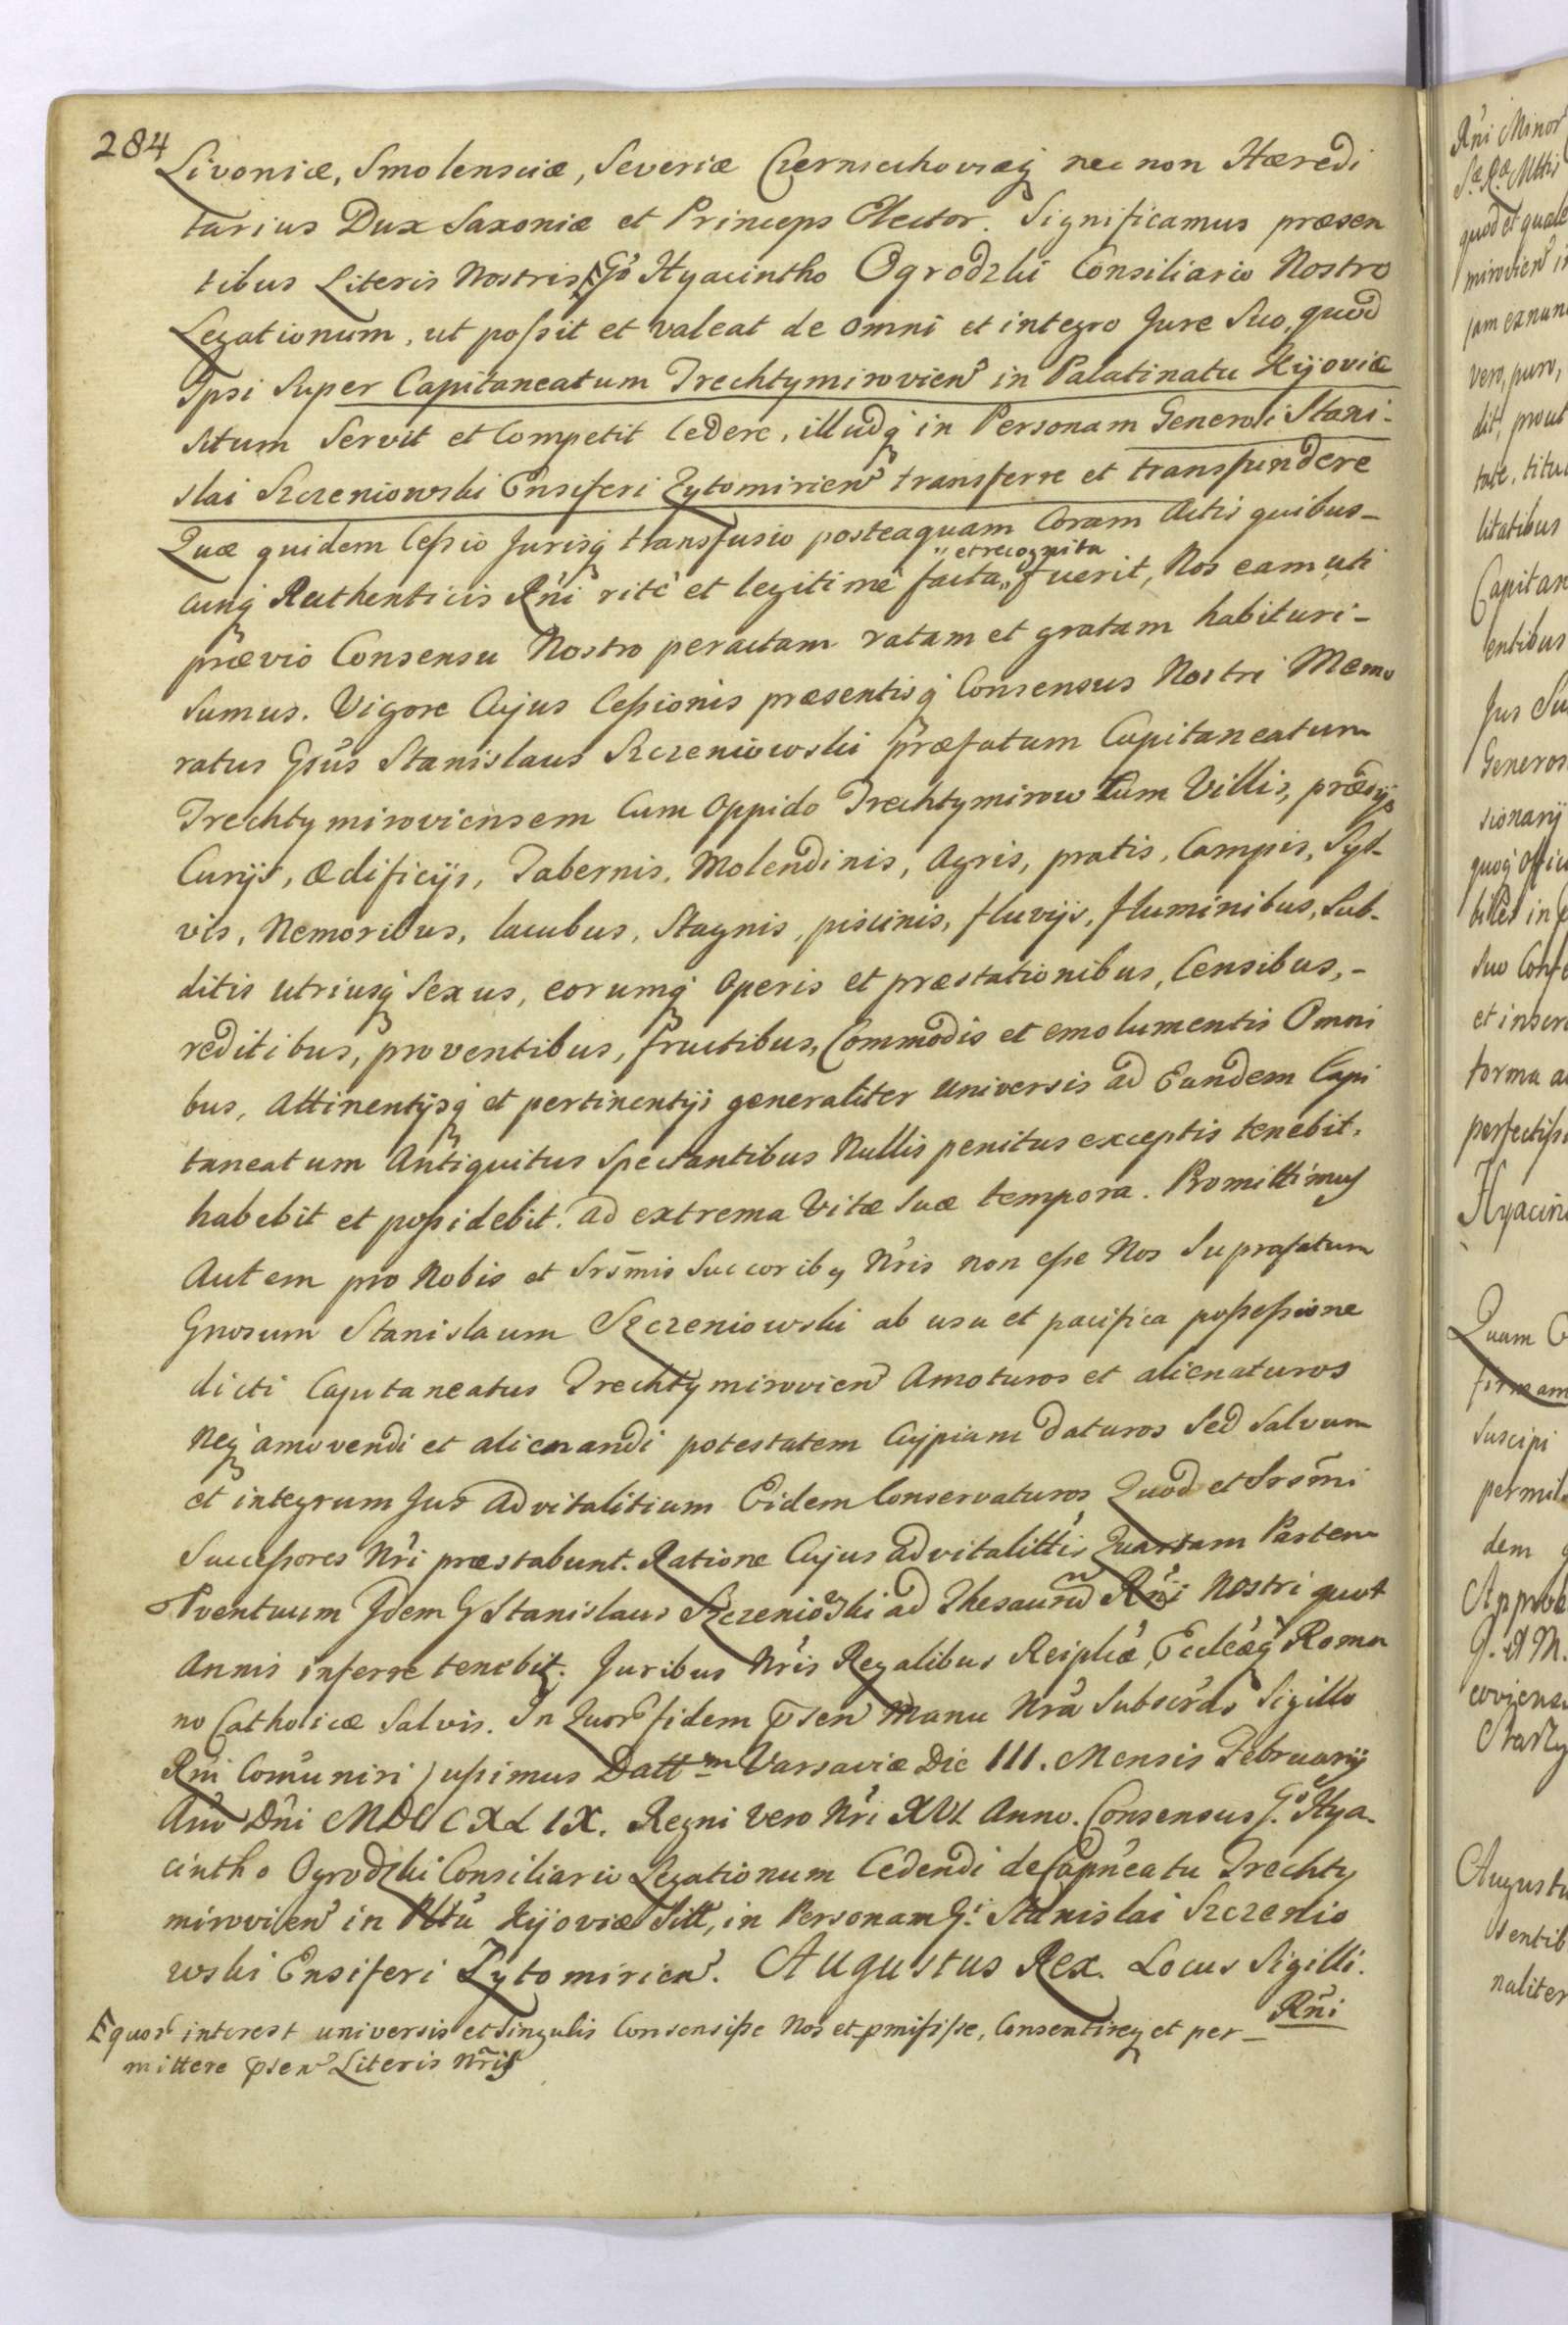 284
Livoniæ, Smolensciæ, Severiæ Czerniechoviæq nec non Hæredi
tarius Dux Saxoniæ et Princeps Elector. Significamus præsen
tibus Literis Nostris Gs̃o Hyacintho Ogrodzki Consiliario Nostro
Legationum, ut possit et valeat de omni et integro Jure Suo, quod
Ipsi Super Capitaneatum Trechtymirovien in Palatinatu Kijoviæ
situm Servit et Competit Cedere, illudq in Personam Generosi Stani-
slai Szczeniowski Ensiferi Zytomirien transferre et transfundere
Quæ quidem Cessio Jurisq transfusio posteaquam Coram Actis quibus-
cunq Authenticis Rñi ritè et legitimè facta „ et recognita „ fuerit, Nos eam uti
prævio Consensu Nostro peractam ratam et gratam habituri-
sumus. Vigore Cujus Cessionis præsentisq Consensus Nostri Memo
ratus Gs̃us Stanislaus Szczeniowski præfatum Capitaneatum
Trechtymiroviensem Cum Oppido Trechtymirow Cum Villis, prædijs
Curijs, ædificijs, Tabernis, Molendinis, Agris, pratis, Campis, Syl-
vis, Nemoribus, lacubus, Stagnis, piscinis, fluvijs, fluminibus, Sub-
ditis utriusq Sexus, eorumq Operis et præstationibus, Censibus,-
reditibus, proventibus, fructibus, Commodis et emolumentis Omni
bus, Attinentijsq et pertinentijs generaliter Universis ad Eundem Capi
taneatum Antiquitus Spectantibus Nullis penitus exceptis tenebit,
habebit et possidebit. ad extrema Vitæ Suæ tempora. Promittimus
Autem pro Nobis et Srs̃mis Succoribq Nr̃is non esse Nos Suprafatum
Gnosum Stanislaum Szczeniowski ab usu et pacifica possessione
dicti Capitaneatus Trechtymirovien Amoturos et alienaturos
Neq amovendi et alienandi potestatem Cuipiam Daturos Sed Salvum
et integrum Jus Advitalitium Eidem Conservaturos Quod et Srs̃mi
Successores Nr̃i præstabunt. Ratione Cujus Advitalitti Quartam Partem
Pventuum Idem G Stanislaus Szczeniowski ad Thesaurũ Rñi Nostri quot
Annis inferre tenebit. Juribus Nr̃is Regalibus Reiplicæ, Eccleæq Roma
no Catholicæ Salvis. In Quor fidem Psen Manu Nr̃a Subscr̃as Sigillo
Rñi Comuniri jussimus Datt m Varsaviæ Die III. Mensis Februarij
Año Dñi MDCCXLIX. Regni Vero Nr̃i XVI Anno. Consensus G.so Hya-
cintho Ogrodzki Consiliario Legationum Cedendi de Capñeatu Trechty
mirovien in Pltũ Kijoviæ Sitt, in Personam G.i Stanislai Szczenio
wski Ensiferi Zytomirien. Augustus Rex. Locus Sigilli.
Rñi
quor interest universis et Singulis Consensisse Nos et pmisisse, Consentireq et per-
mittere Psen Literis Nr̃is